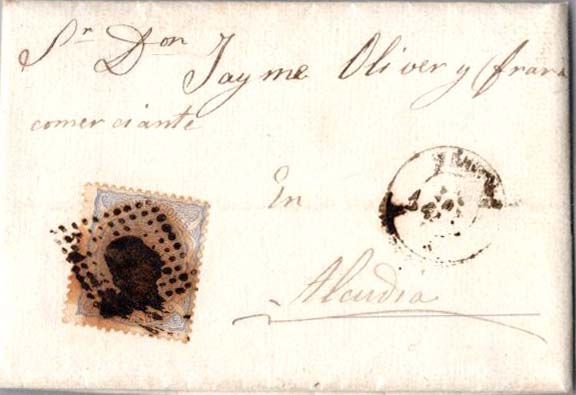 Sr Don Jayme Oliver y
comerciante
En
Alcudia